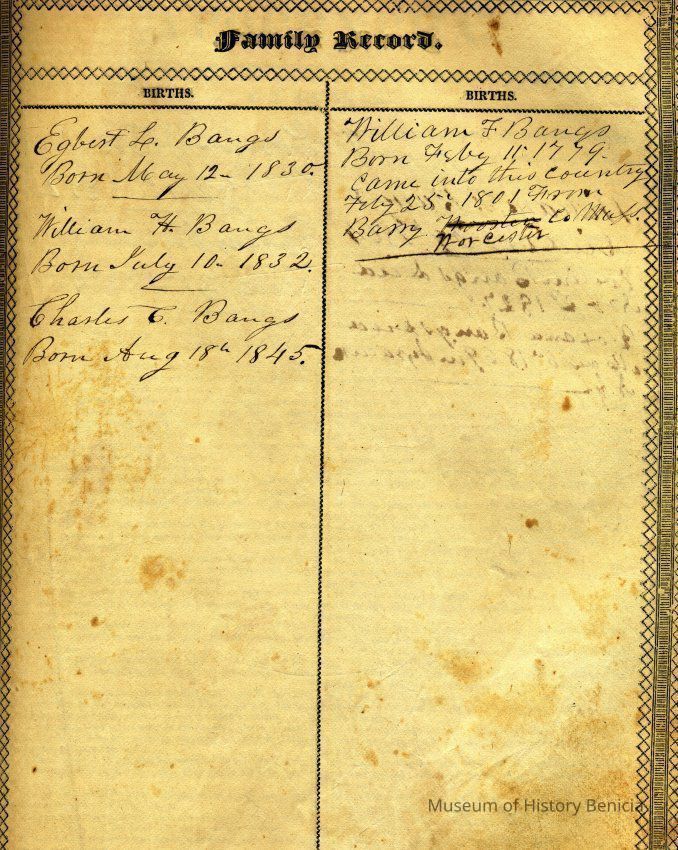 Family Record.
BIRTHS.
Egbert L. Bangs
Born May 12- 1830.
William H. Bangs
Born July 10- 1832.
Charles C. Bangs
Born Aug 18th 1845.
BIRTHS.
William F Bangs
Born Feby 11- 1779-
Came into this country
Feby 25th 1801 From
Barry Co Mass.
Worcester
Museum of History Benicia